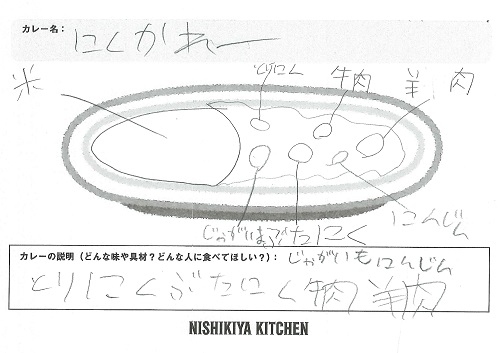 カレー名：
にくかれー
米
とりにく
牛肉
羊肉
じゃがいも
ぶたにく
にんじん
カレーの説明（どんな味や具材？どんな人に食べてほしい？）：
じゃがいもにんじん
とりにくぶたにく牛肉羊肉
NISHIKIYA KITCHEN